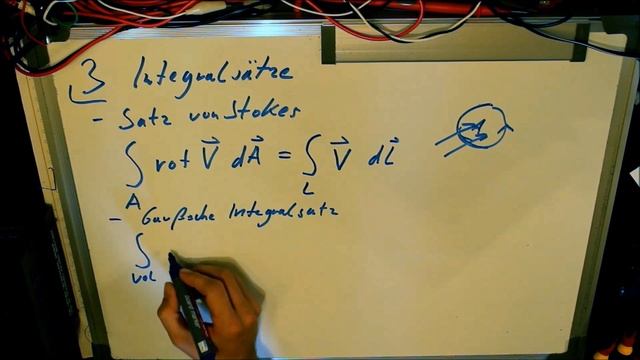 3 Integralsätze
- Satz von Stokes
∫ rot V⃗ dA⃗ = ∫ V⃗ dL⃗
A L
- Gaußsche Integralsatz
∫
vol